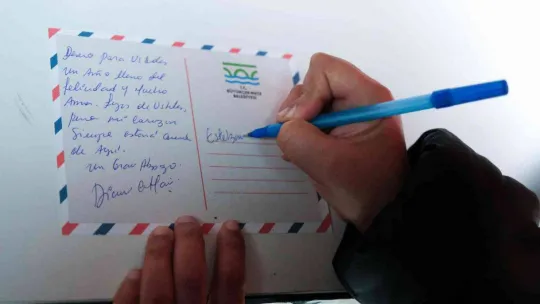 Deseo para Ustedes
un Año lleno de
felicidad y Mucho
Amor. Lejos de Ustedes,
pero mi corazon
Siempre estará cerca
de Aquí.
Un Gran Abrazo
T.C.
BÜYÜKÇEKMECE
BELEDİYESİ